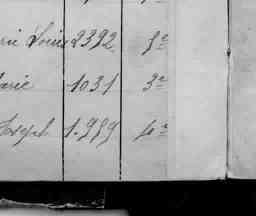 Louise 2392 8e
Marie 1031 3e
Joseph 1.989 4e